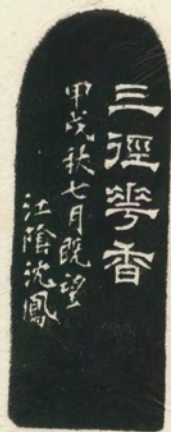 三徑華香
甲戌秋七月既望
江陰沈鳳